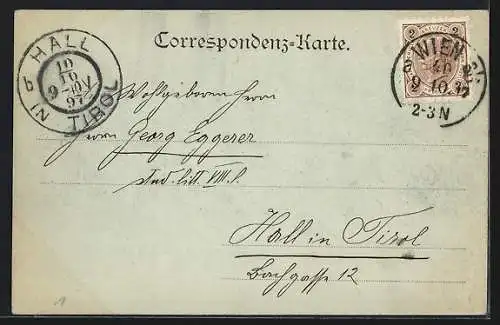 Correspondenz-Karte.
2 2
WIEN
9 10 97
2-3N
HALL
IN TIROL
10
10
9-10V
97
Wohlgeboren Herrn
Herrn Georg Eggerer
stud. litt. VIII.
Hall in Tirol
Bachgasse 12